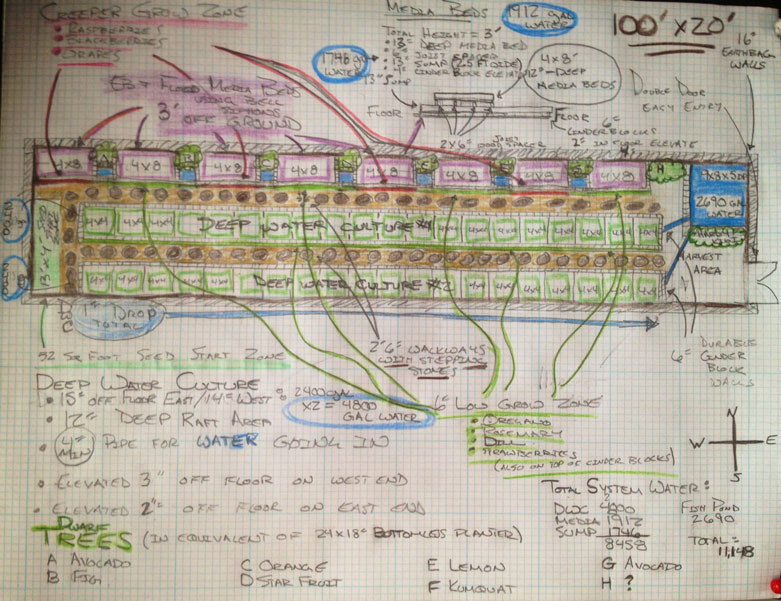 Creeper Grow Zone
• Raspberries
• Blackberries
• Grapes
Media Beds
1912 gal
water
Total Height = 3'
Deep media bed
1746 gal
water
13" Sump
4x8'
12"-Deep
Media Beds
Floor
Floor
6"
Cinderblocks
2" in floor elevate
2x6" wood joist spacer
100' x 20'
16"
Earthbag
Walls
Double Door
Easy Entry
Ebb + Flood Media Beds
using bell
siphons
3' off ground
4x8
4x8
4x8
4x8
4x8
4x8
4x8
4x8
H
2690 gal
water
Deep Water Culture #1
Deep Water Culture #2
Harvest
Area
1" Drop
Total
52 sq foot Seed Start Zone
2'6" walkways
with stepping
stones
6"
Durable
Cinder
Block
Walls
Deep Water Culture
• 15" off floor East/14" West
2400 gal
x2 = 4800
gal water
• 12" Deep Raft Area
• 4" min Pipe for water going in
• Elevated 3" off floor on west end
• Elevated 2" off floor on east end
6" Low Grow Zone
• Oregano
• Rosemary
• Dill
• Strawberries
(also on top of cinder blocks)
N
W E
S
Total System Water:
DWC 4800
Media 1912
Sump 1746
8458
Fish Pond
2690
Total =
11,148
Dwarf
Trees (in equivalent of 24x18" bottomless planter)
A Avocado
B Fig
C Orange
D Star Fruit
E Lemon
F Kumquat
G Avocado
H ?